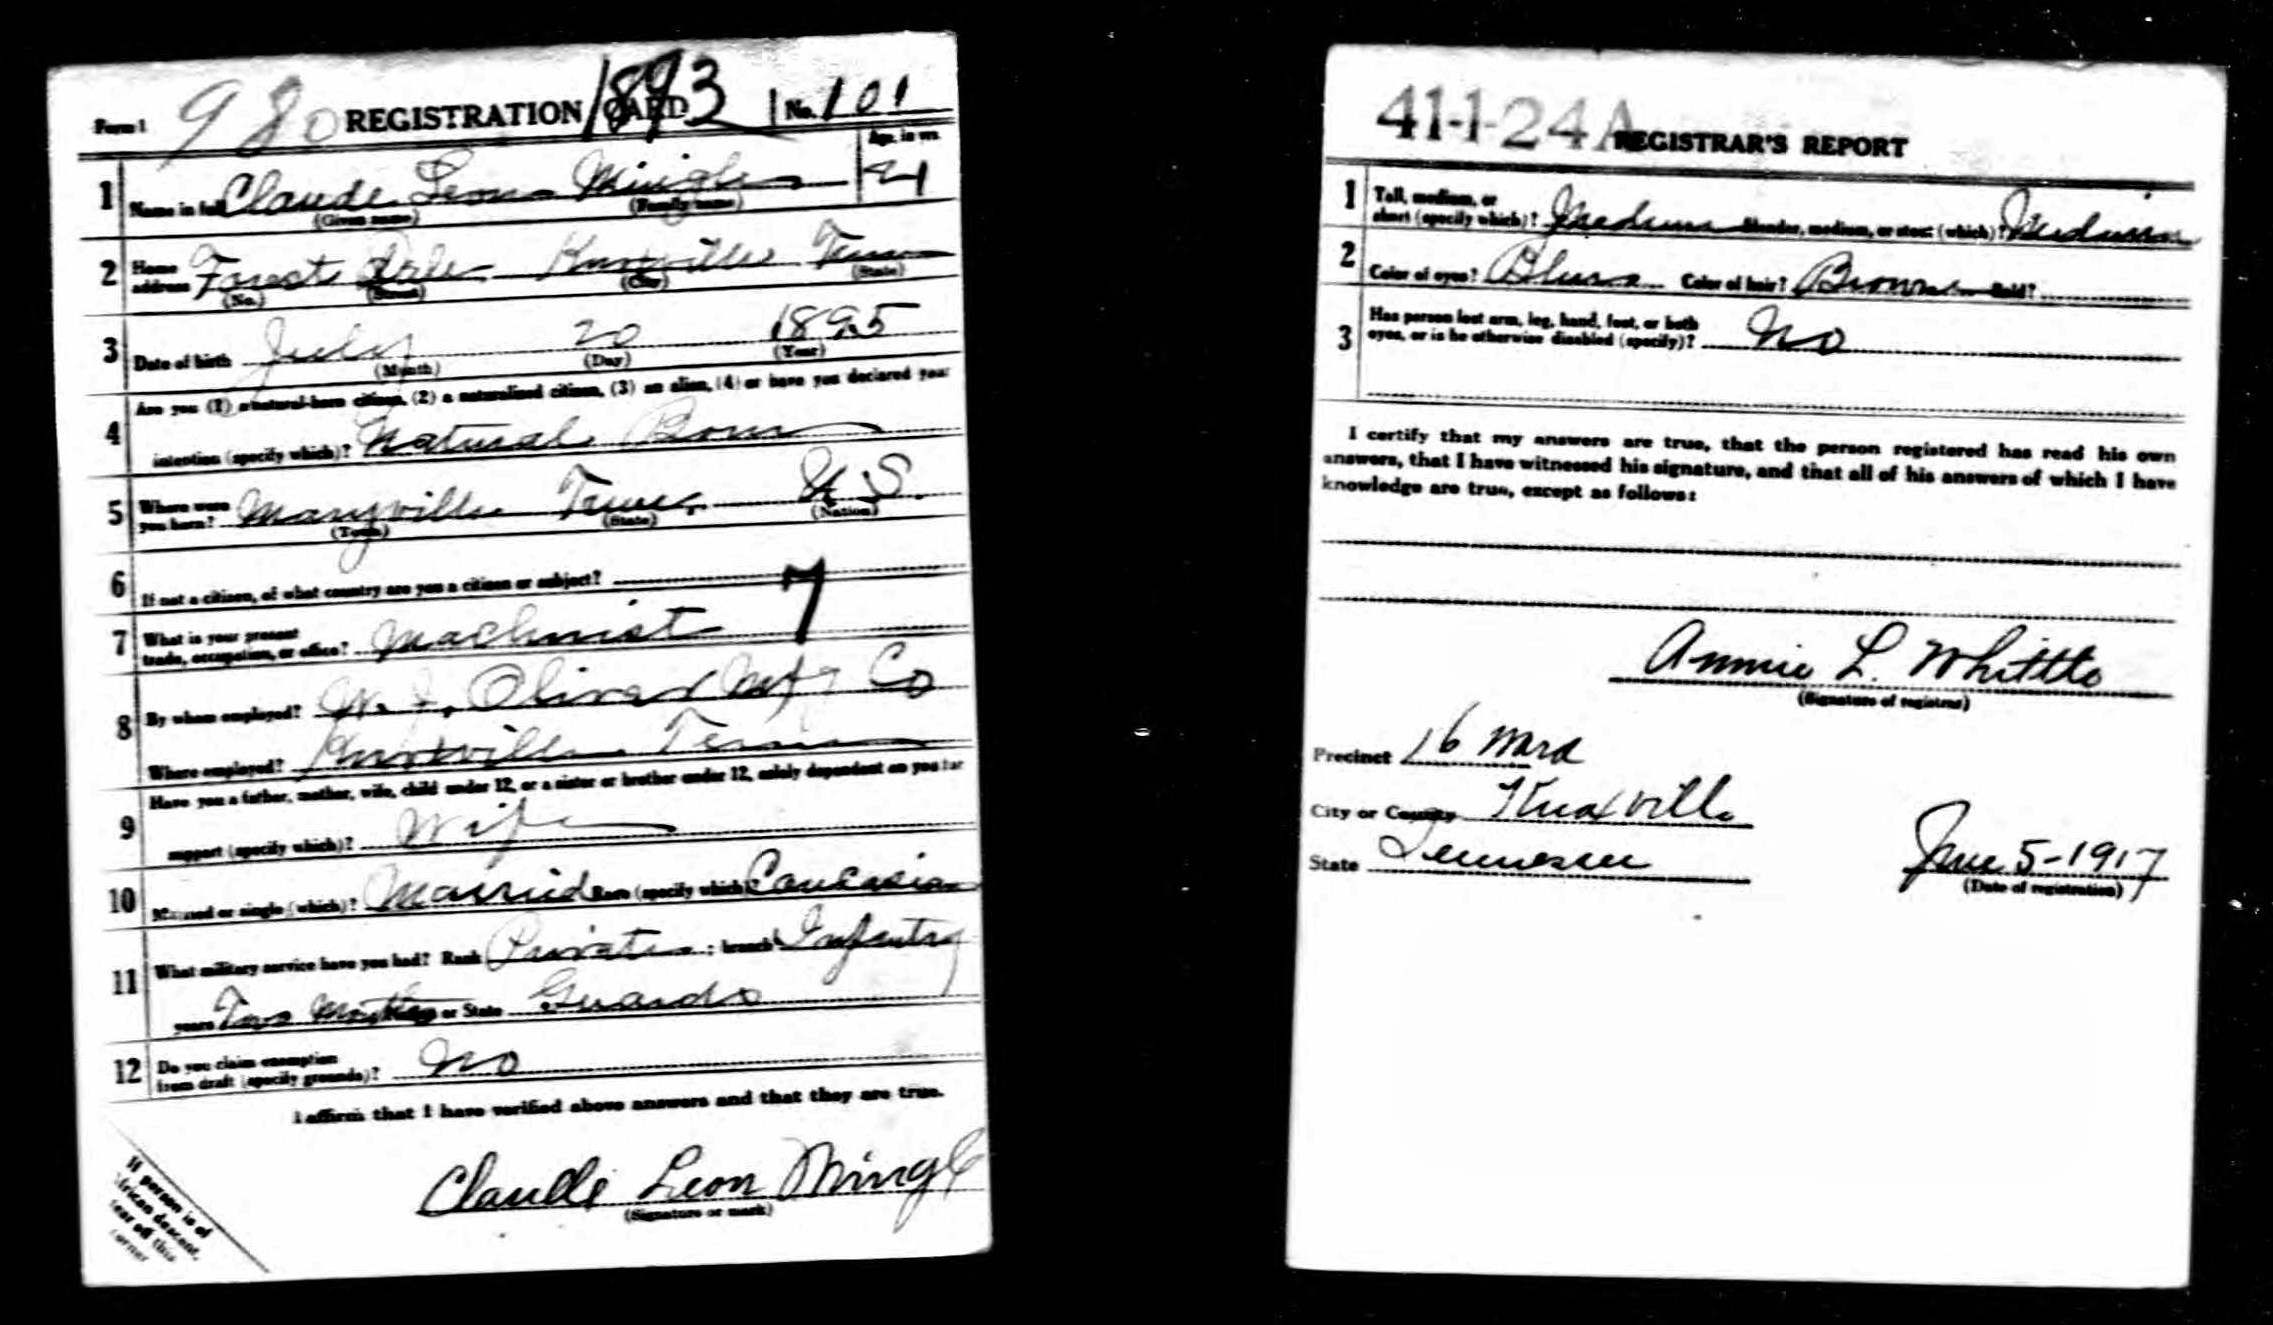 Form 1 980 REGISTRATION CARD 1893 No. 101
Age, in yrs.
1 Name in full Claude Leon Mingle 21
(Given name) (Family name)
2 Home address Forest Knoxville Tenn
(No.) (Street) (City) (State)
3 Date of birth July 20 1895
(Month) (Day) (Year)
4 Are you (1) a natural-born citizen, (2) a naturalized citizen, (3) an alien, (4) or have you declared your
intention (specify which)? Natural Born
5 Where were you born? Maryville Tenn. U S.
(Town) (State) (Nation)
6 If not a citizen, of what country are you a citizen or subject?
7 What is your present trade, occupation, or office? Machinist 7
8 By whom employed? W. J. Oliver Mfg Co
Where employed? Knoxville Tenn
9 Have you a father, mother, wife, child under 12, or a sister or brother under 12, solely dependent on you for
support (specify which)? Wife
10 Married or single (which)? Married Race (specify which)? Caucasian
11 What military service have you had? Rank Private ; branch Infantry
years Two Months or State Guards
12 Do you claim exemption from draft (specify grounds)? No
I affirm that I have verified above answers and that they are true.
Claude Leon Mingle
(Signature or mark)
If person is of
African descent,
tear off this
corner
41-1-24 A REGISTRAR'S REPORT
1 Tall, medium, or short (specify which)? Medium Slender, medium, or stout (which)? Medium
2 Color of eyes? Blue Color of hair? Brown Bald?
3 Has person lost arm, leg, hand, foot, or both eyes, or is he otherwise disabled (specify)? No
I certify that my answers are true, that the person registered has read his own
answers, that I have witnessed his signature, and that all of his answers of which I have
knowledge are true, except as follows:
Annie L. Whittle
(Signature of registrar)
Precinct 16 Ward
City or County Knoxville
State Tennessee June 5-1917
(Date of registration)